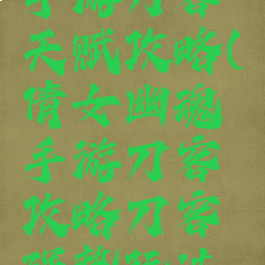 手游刀客
天赋攻略(
倩女幽魂
手游刀客
攻略刀客